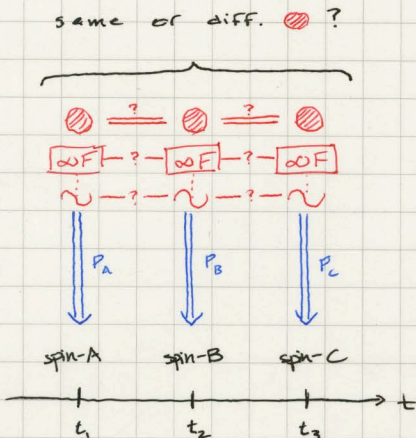 same or diff. ?
? ?
∞F ? ∞F ? ∞F
? ?
P_A P_B P_C
spin-A spin-B spin-C
t
t₁ t₂ t₃